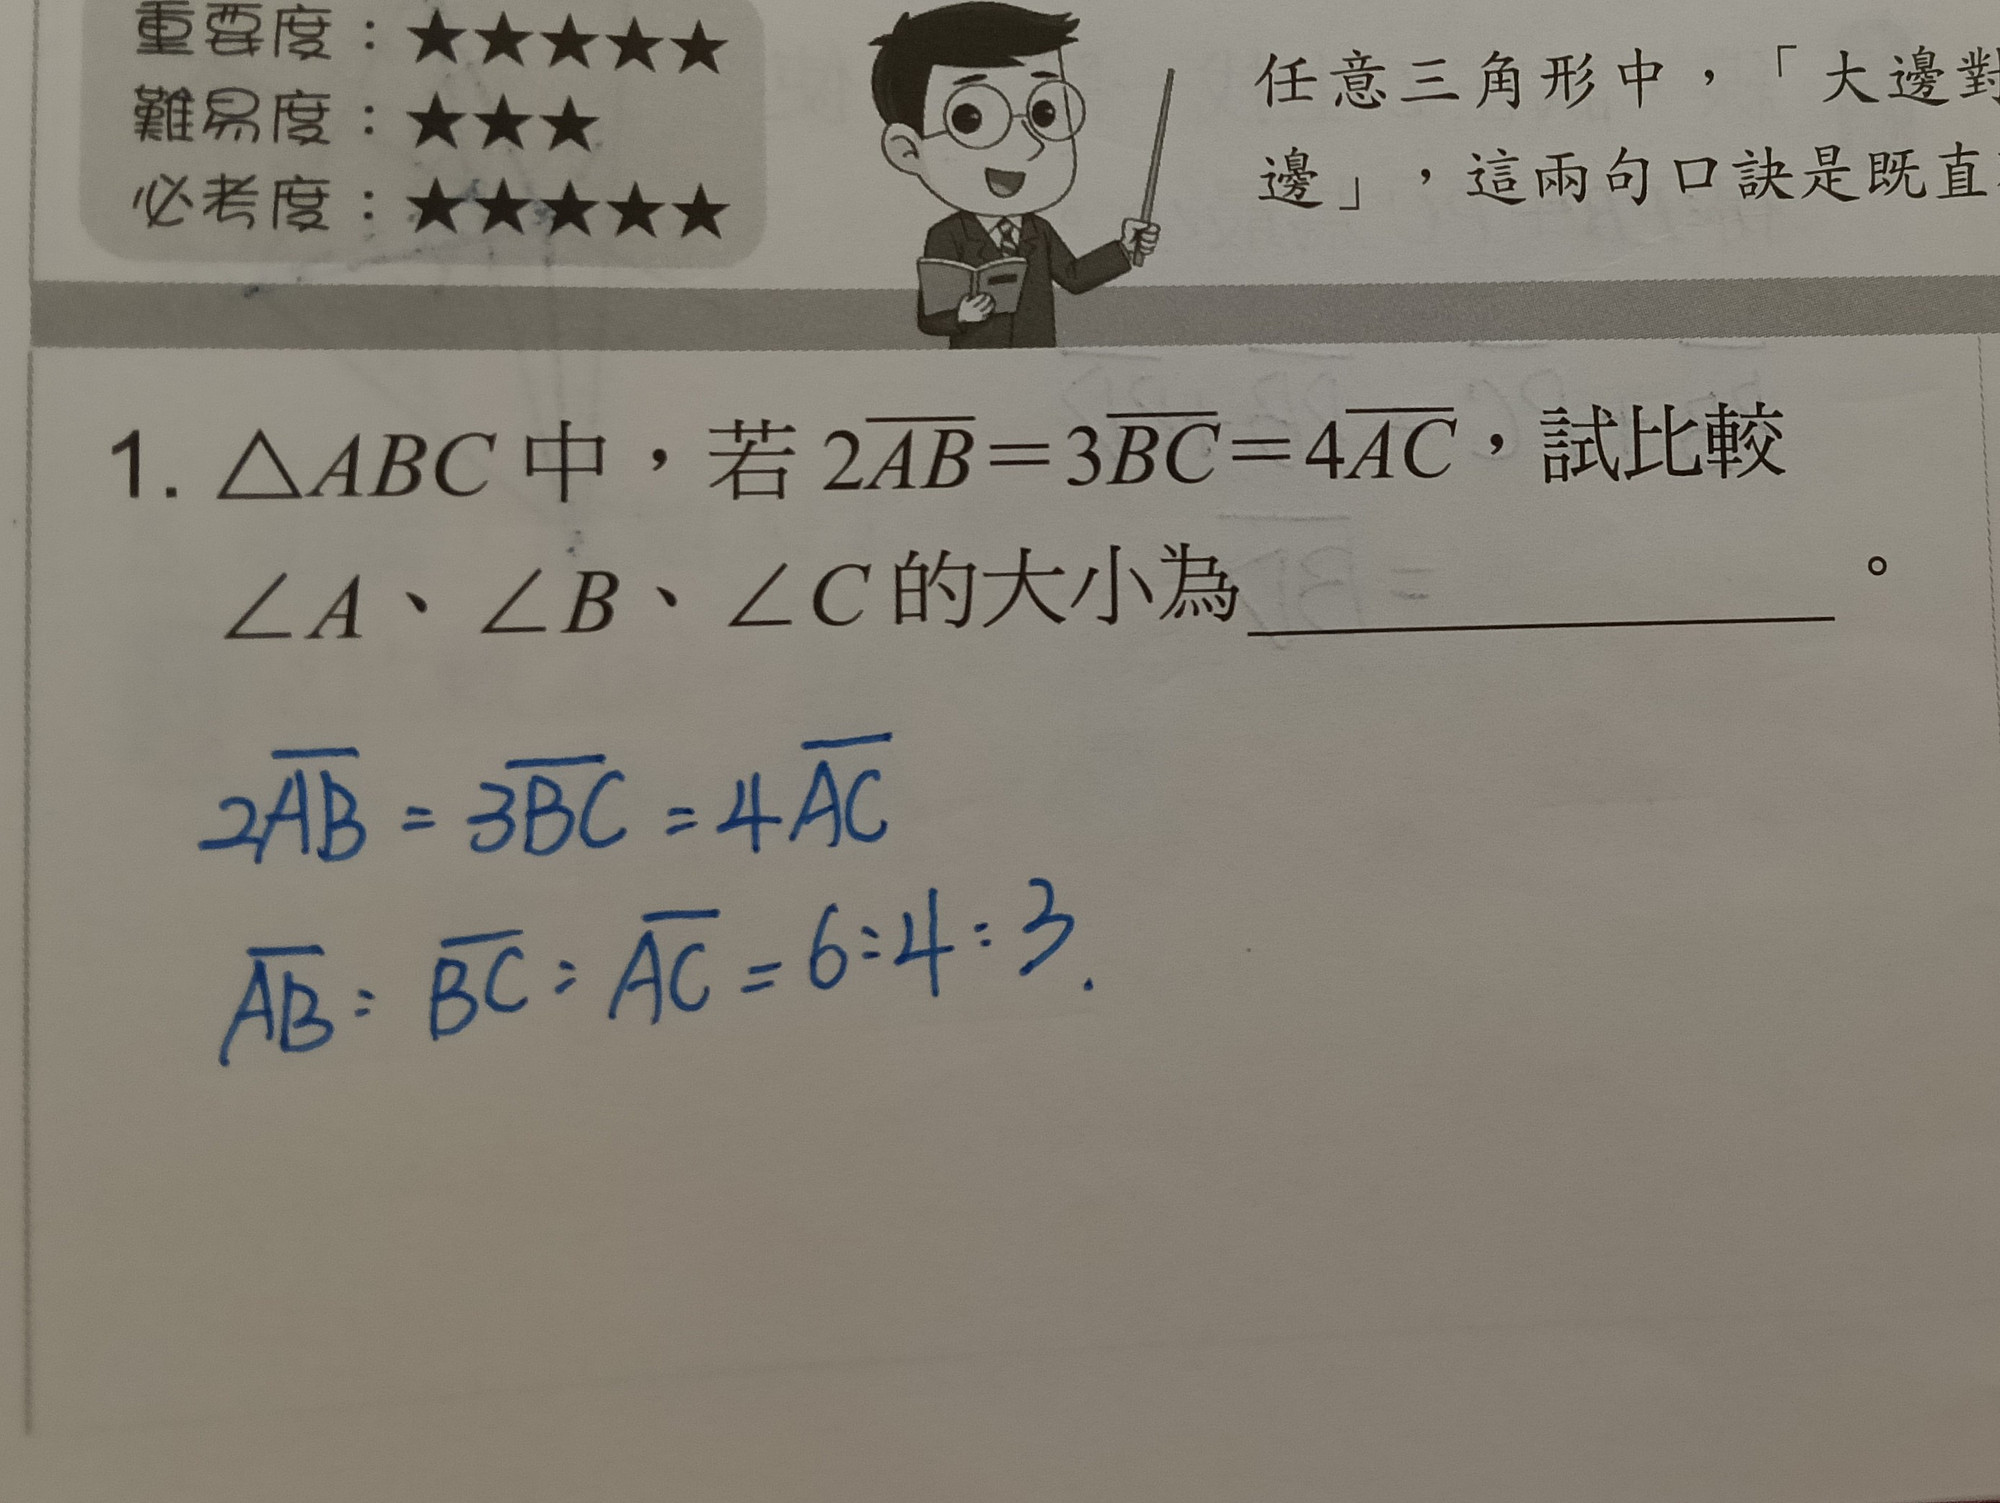 重要度：★★★★★
難易度：★★★
必考度：★★★★★
任意三角形中，「大邊對
邊」，這兩句口訣是既直
1. △ABC 中，若 2\overline{AB}=3\overline{BC}=4\overline{AC}，試比較
∠A、∠B、∠C 的大小為__________。
2\overline{AB} = 3\overline{BC} = 4\overline{AC}
\overline{AB} : \overline{BC} : \overline{AC} = 6:4:3.